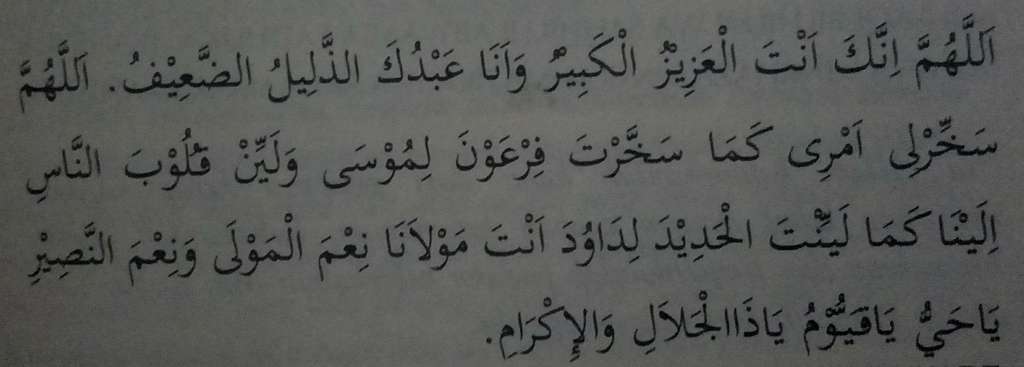 اَللَّهُمَّ اِنَّكَ اَنْتَ الْعَزِيْزُ الْكَبِيْرُ وَاَنَا عَبْدُكَ الذَّلِيلُ الضَّعِيْفُ. اَللَّهُمَّ
سَخِّرْلِى اَمْرِى كَمَا سَخَّرْتَ فِرْعَوْنَ لِمُوْسَى وَلَيِّنْ قُلُوْبَ النَّاسِ
اِلَيْنَا كَمَا لَيَّنْتَ الْحَدِيْدَ لِدَاوُدَ اَنْتَ مَوْلاَنَا نِعْمَ الْمَوْلَى وَنِعْمَ النَّصِيْرِ
يَاحَيُّ يَاقَيُّوْمُ يَاذَاالْجَلاَلِ وَالإِكْرَامِ.